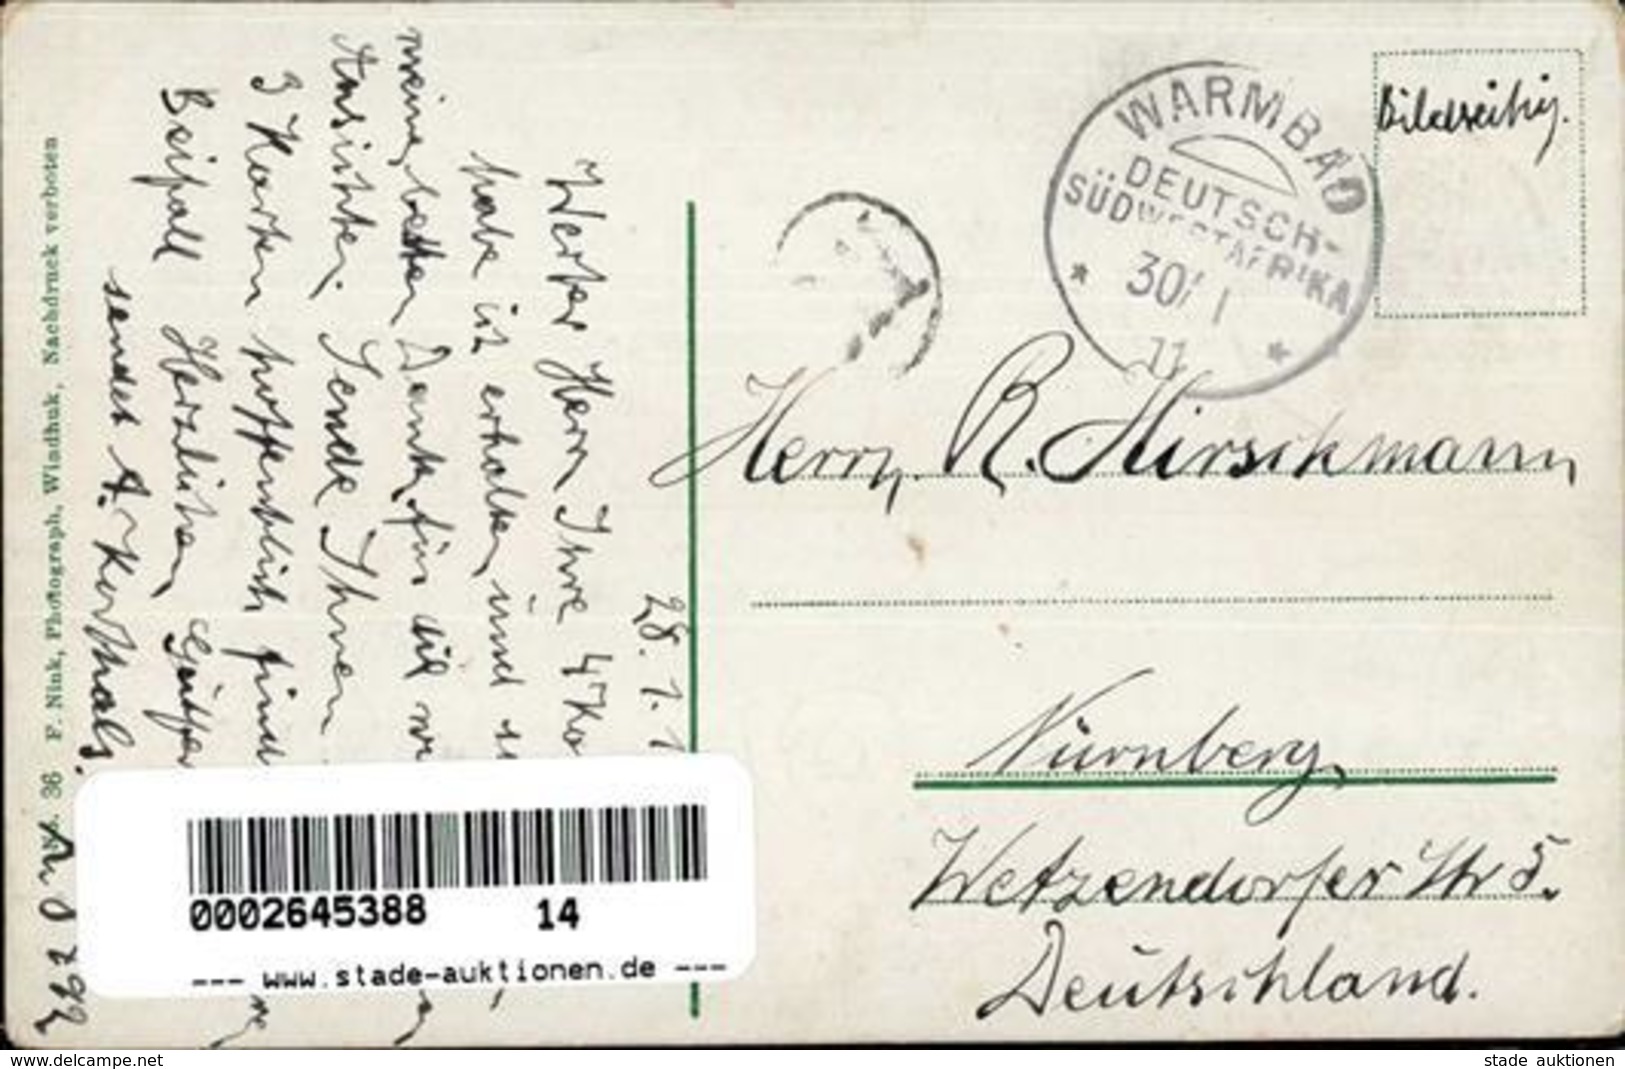 28. 1. 1
Werter Herr Ihre 4 Ko
habe ich erhalten und
meine besten Dank für die
Ansichten. Sende Ihnen
3 Karten hoffentlich find
Beifall Herzlichen
sendet A. Korthals.
No. 36 F. Nink, Photograph, Windhuk, Nachdruck verboten
WARMBAD
DEUTSCH-
SÜDWESTAFRIKA
30/ 1
11
Bildseitig.
Herrn. R. Hirschmann
Nürnberg.
Wetzendorfer Str 5.
Deutschland.
0002645388 14
--- www.stade-auktionen.de ---
www.delcampe.net
stade auktionen